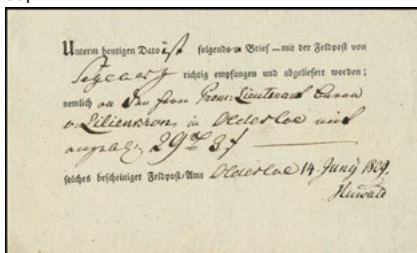 Unterm heutigen Dato ist folgender Brief — mit der Feldpost von
richtig empfangen und abgeliefert worden;
nemlich an den Herrn Prem: Lieutenant Baron
v. Liliencron in Oldesloe mit
29
solches bescheiniget Feldpost-Amt Oldesloe 14 Juny 1809.